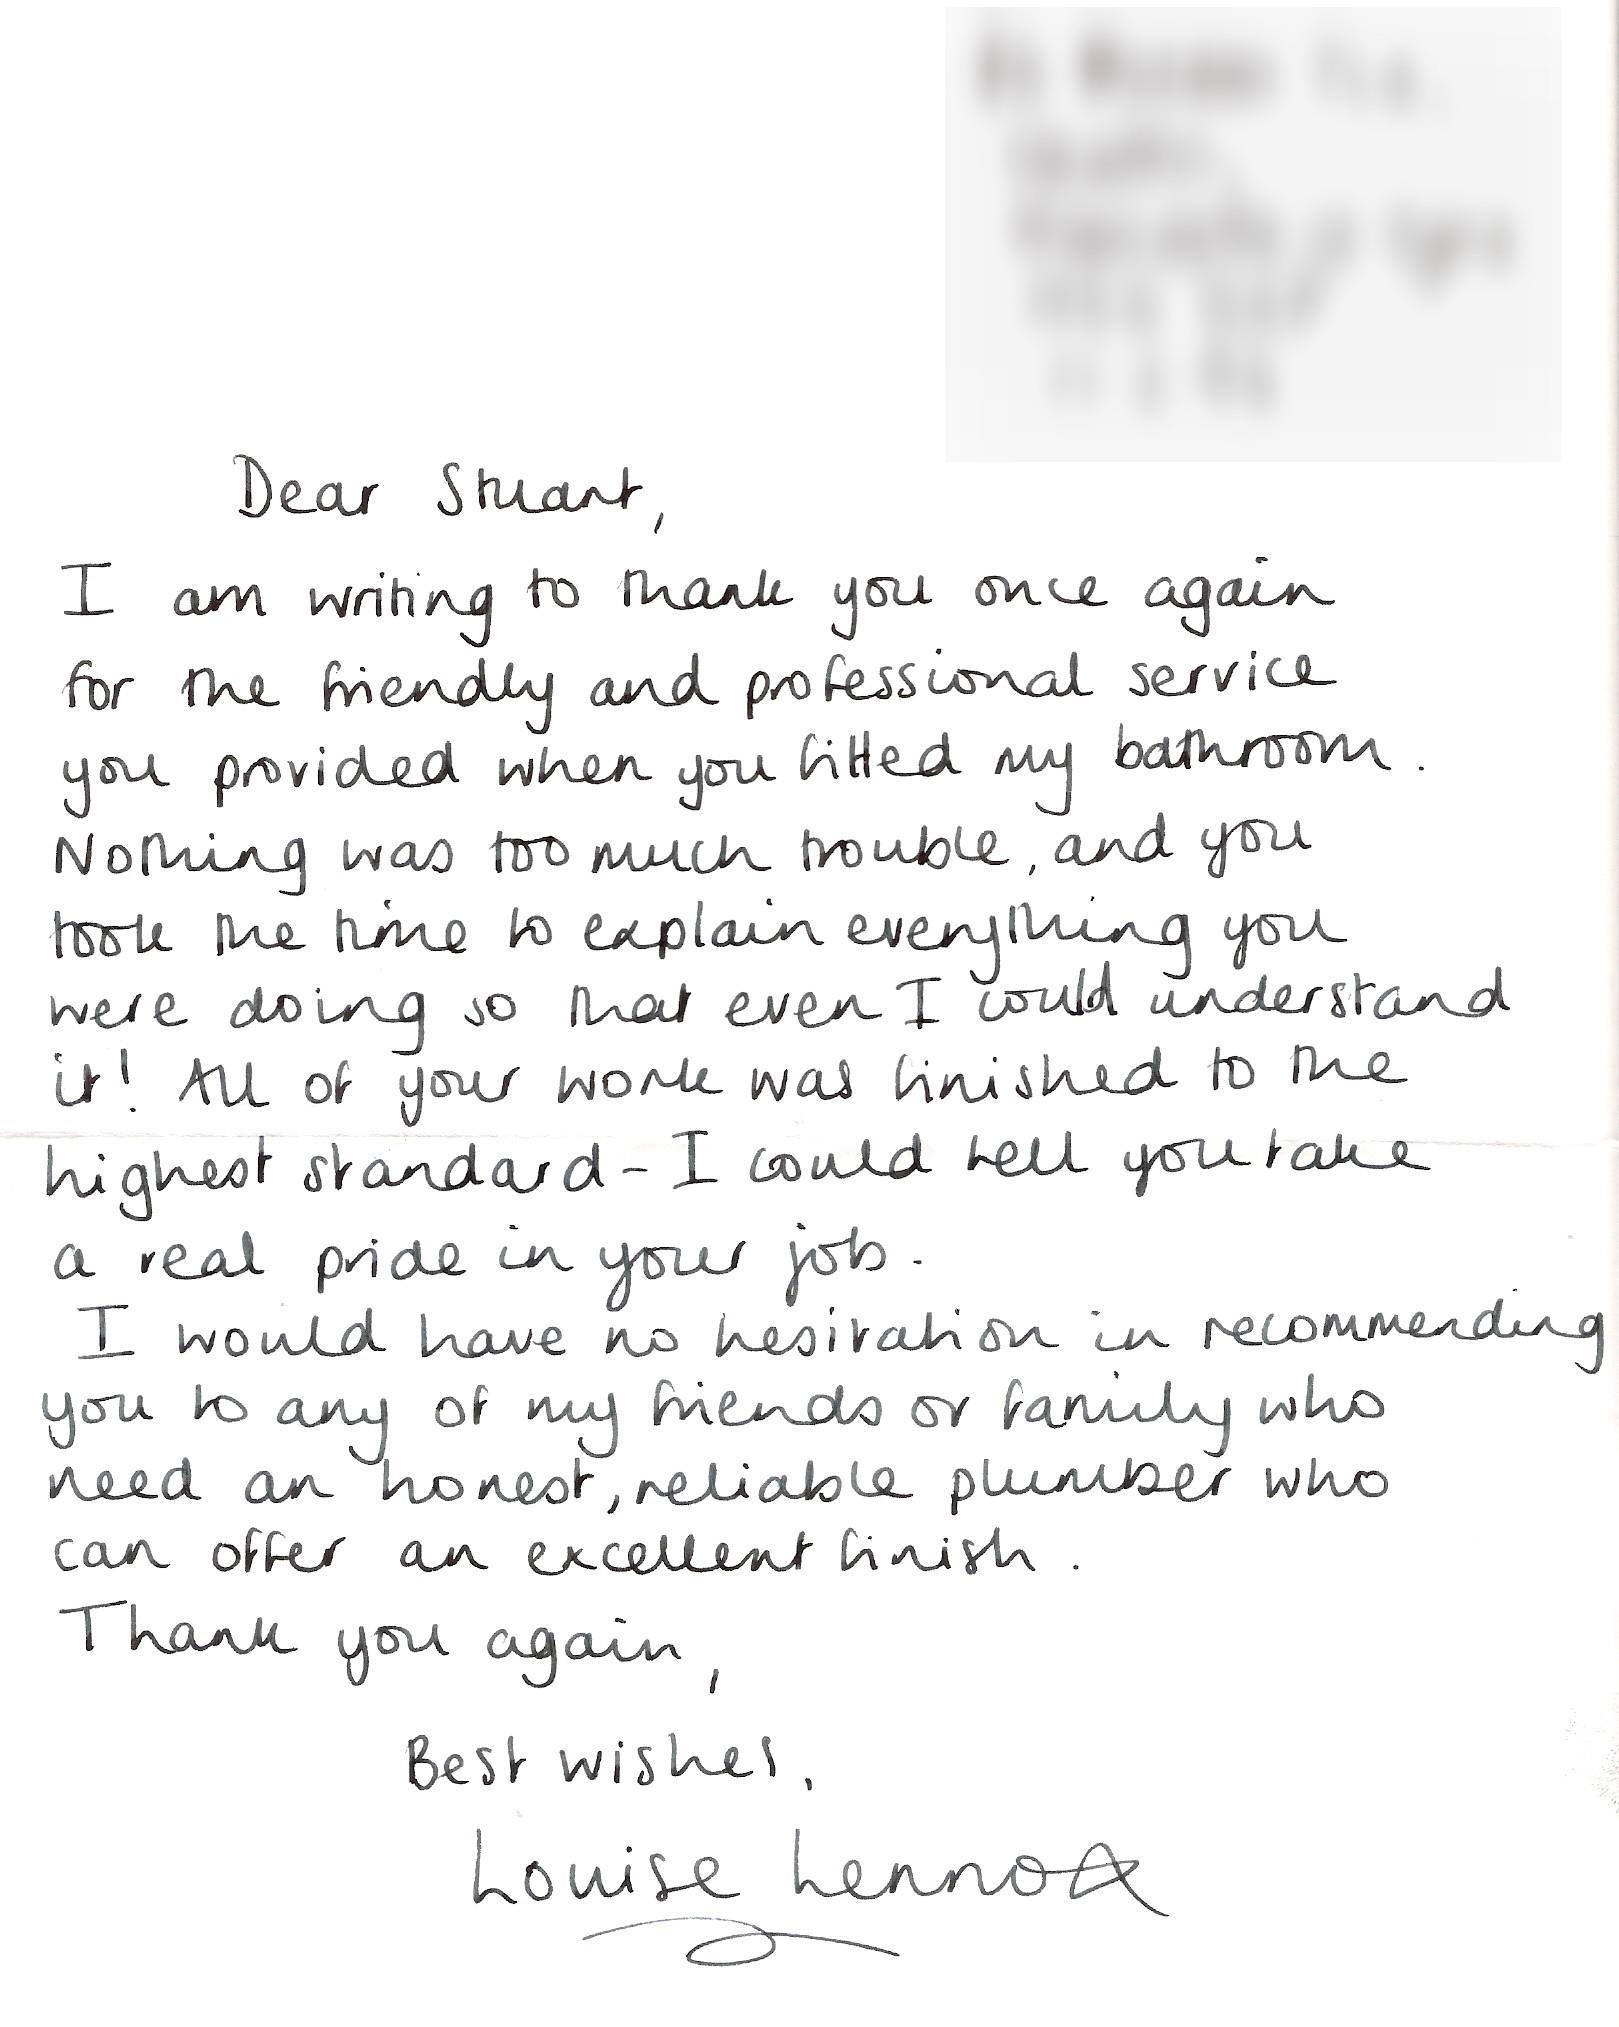 Dear Stuart,
I am writing to thank you once again
for the friendly and professional service
you provided when you fitted my bathroom.
Nothing was too much trouble, and you
took the time to explain everything you
were doing so that even I could understand
it! All of your work was finished to the
highest standard - I could tell you take
a real pride in your job.
I would have no hesitation in recommending
you to any of my friends or family who
need an honest, reliable plumber who
can offer an excellent finish.
Thank you again,
Best wishes,
Louise Lennox